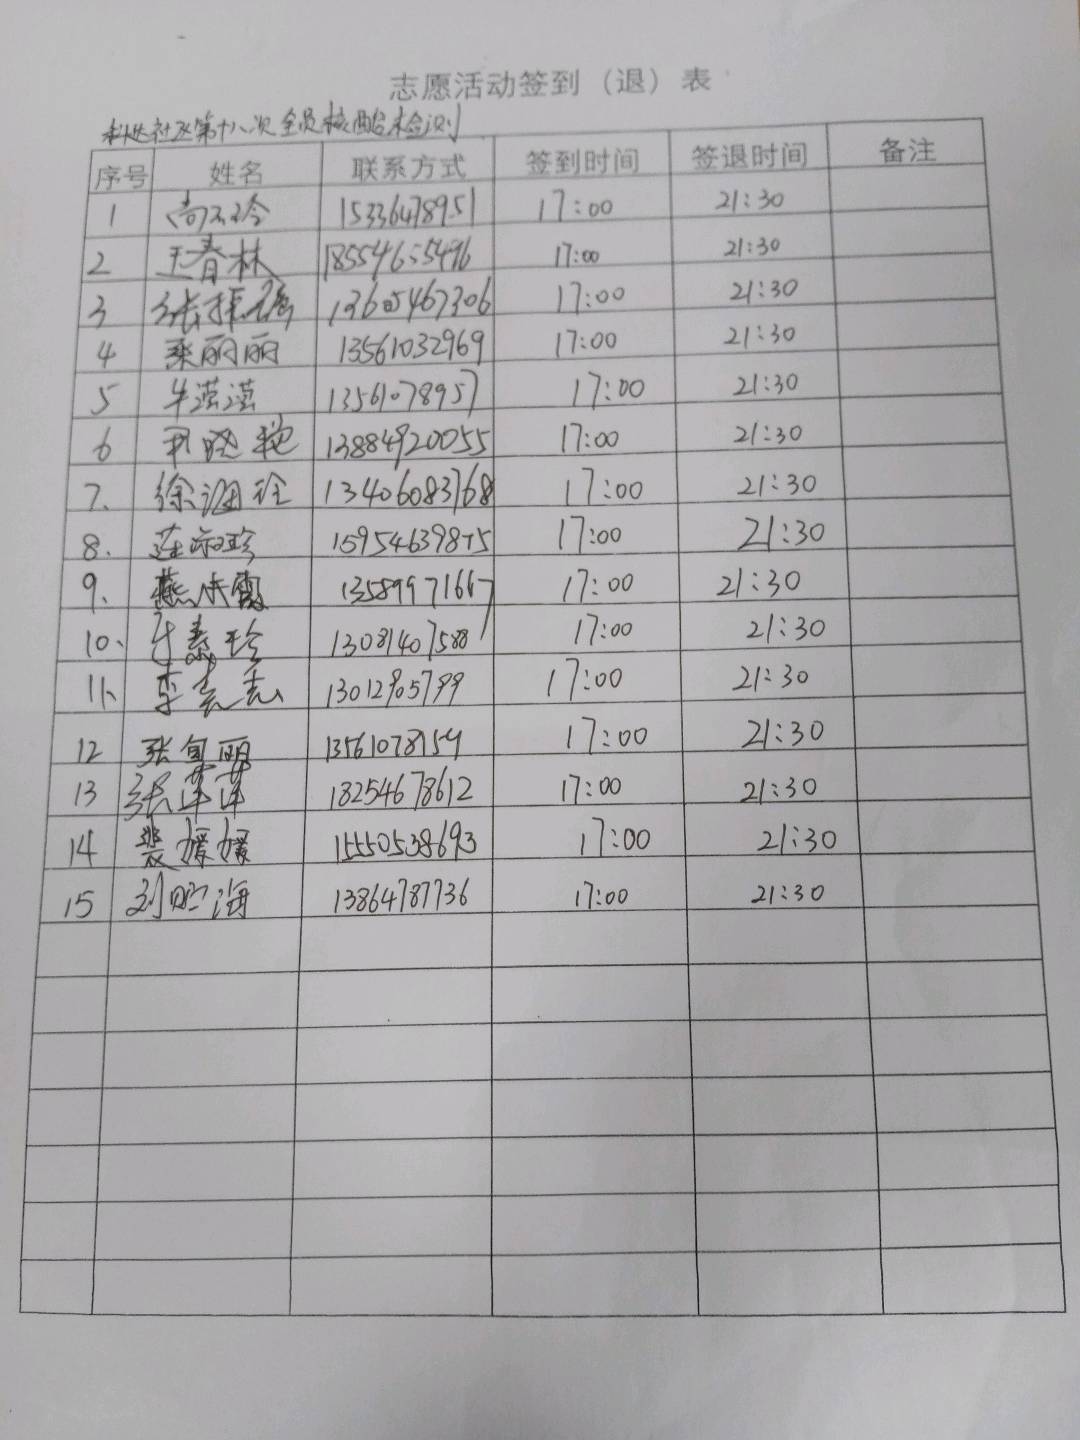 志愿活动签到（退）表
科达社区第十八次全员核酸检测
序号 姓名 联系方式 签到时间 签退时间 备注
1 15336478951 17:00 21:30
2 王春林 18554655496 17:00 21:30
3 13605467306 17:00 21:30
4 丽丽 13561032969 17:00 21:30
5 牛滢滢 13561078957 17:00 21:30
6 尹晓艳 13884920055 17:00 21:30
7. 徐 13406083768 17:00 21:30
8. 17:00 21:30
9. 燕 13589971667 17:00 21:30
10. 珍 13081407588 17:00 21:30
11. 李 13012905799 17:00 21:30
12 张 丽 17:00 21:30
13 张萍萍 18254678612 17:00 21:30
14 裴媛媛 15550538693 17:00 21:30
15 刘 海 13864787736 17:00 21:30